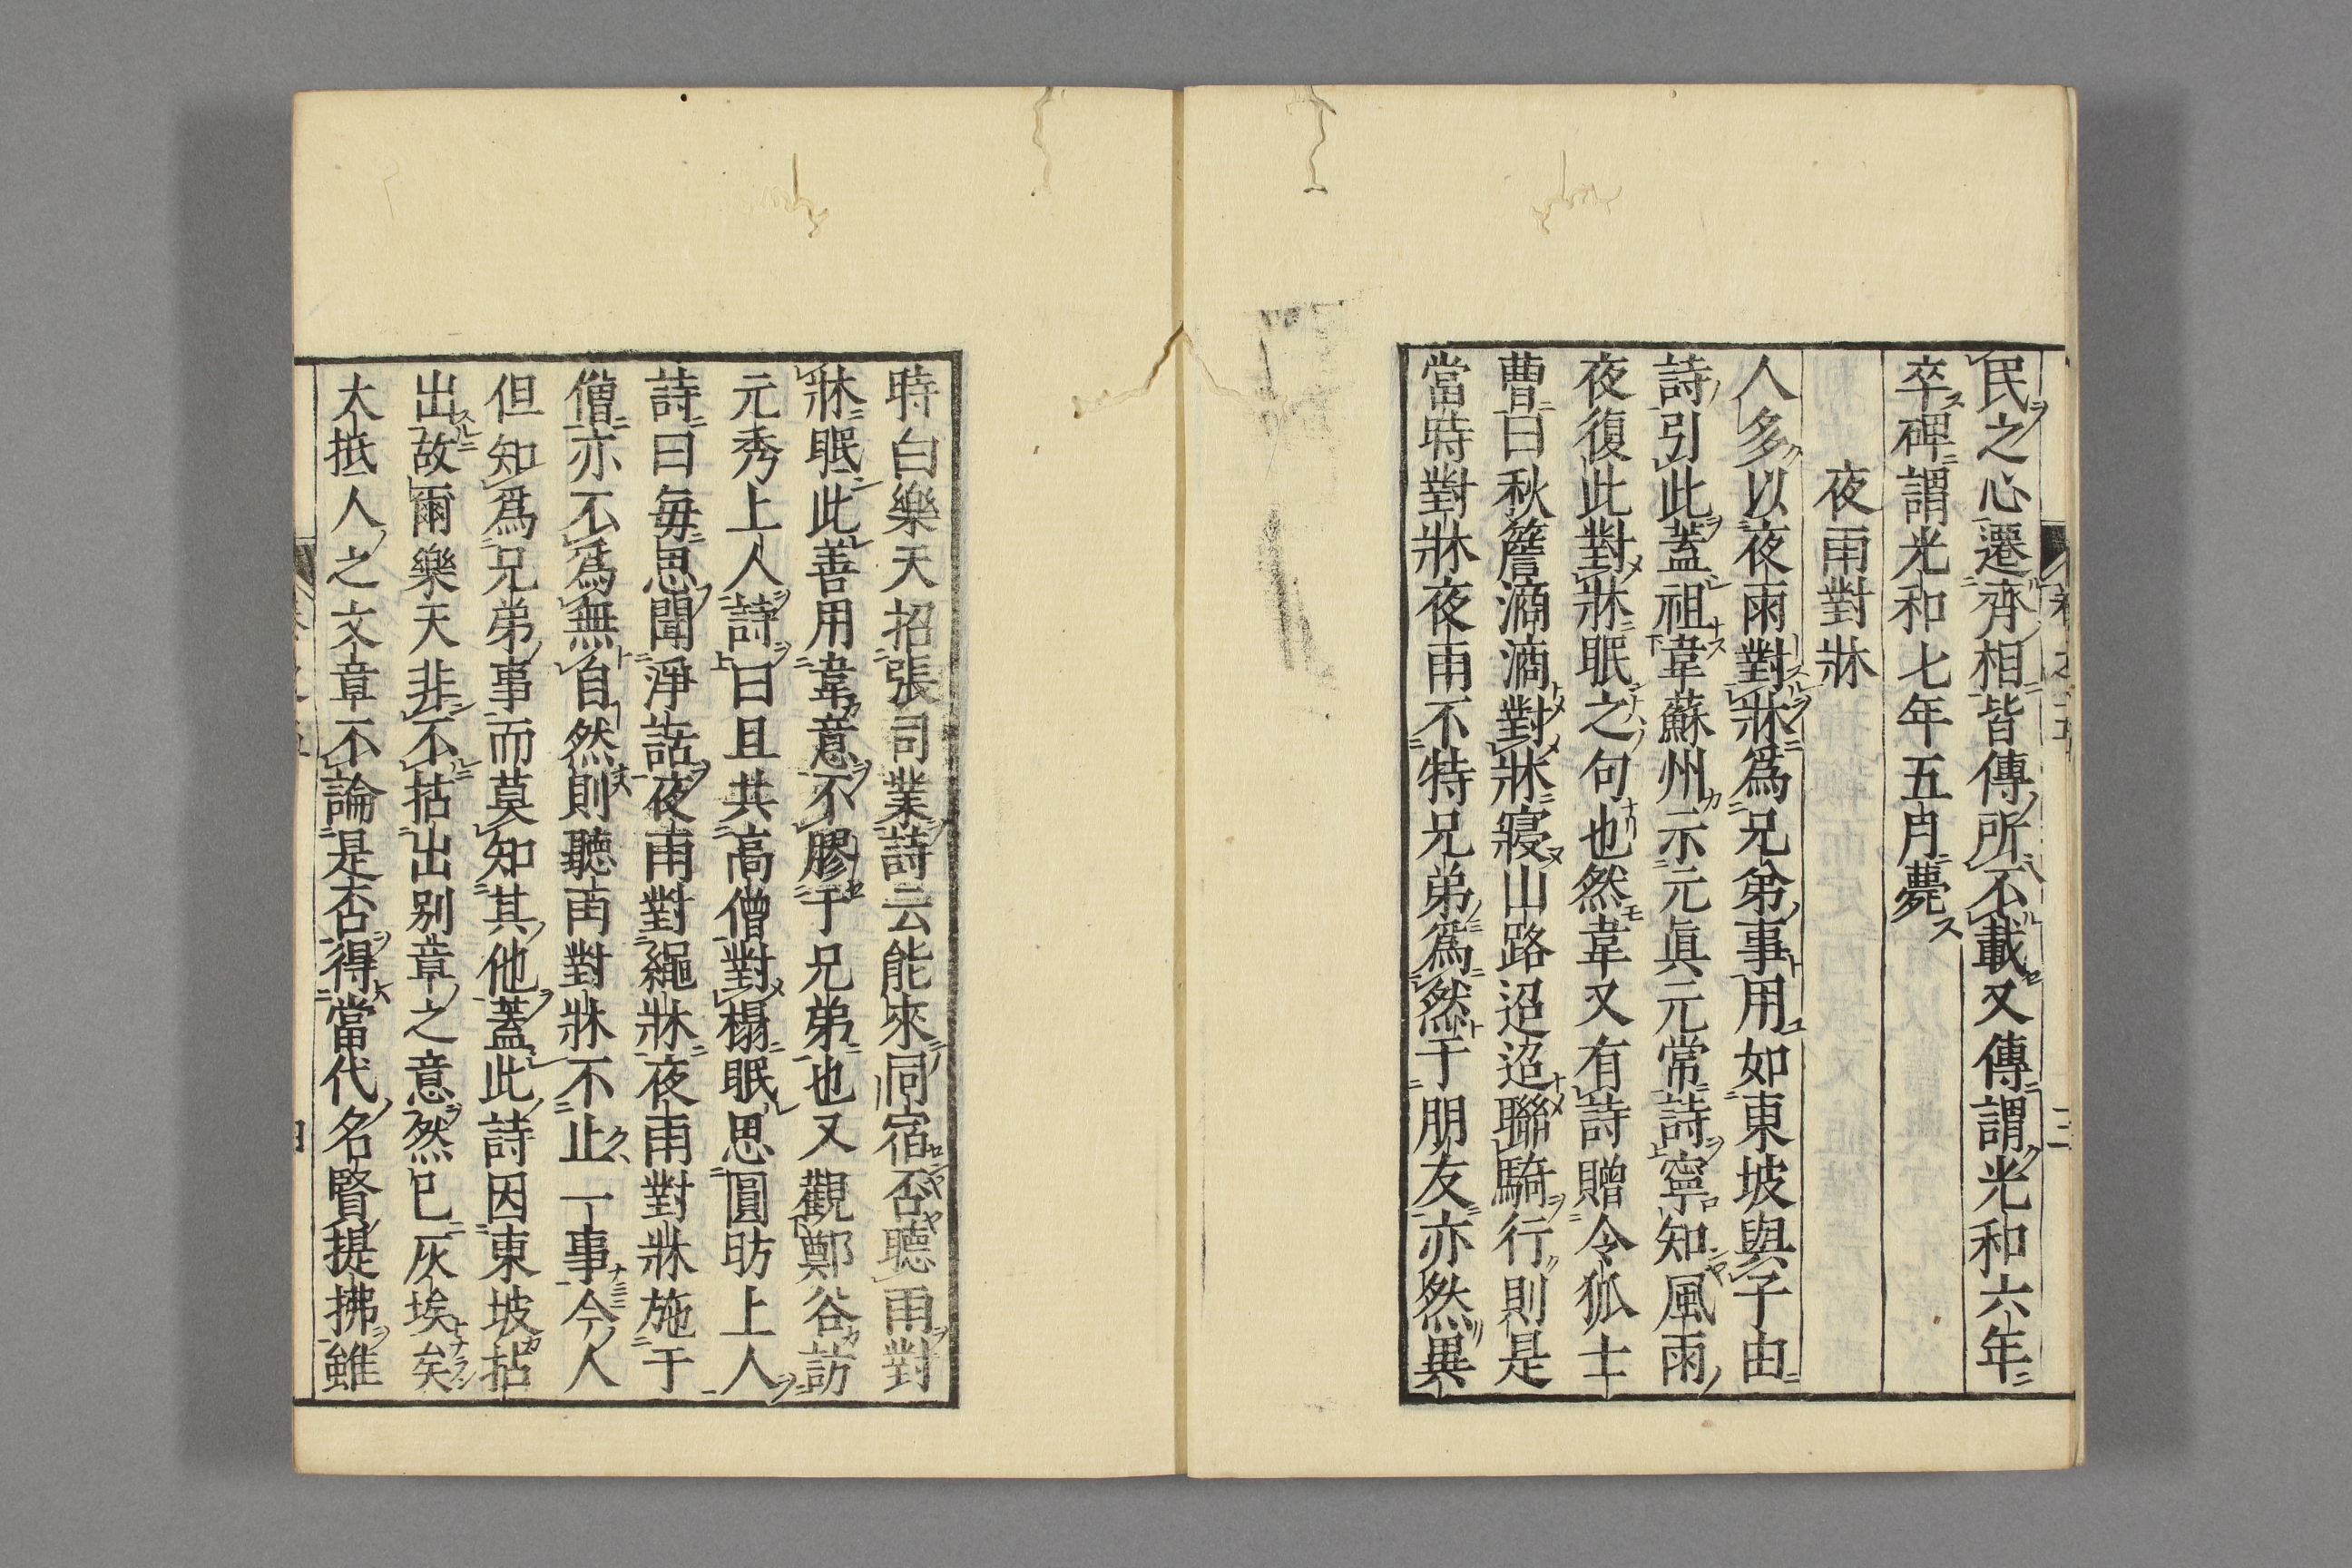 民之心遷齊相皆傳所不載又傳謂光和六年
卒碑謂光和七年五月薨
夜雨對牀
人多以夜雨對牀爲兄弟事用如東坡與子由
詩引此蓋祖韋蘇州示元眞元常詩寧知風雨
夜復此對牀眠之句也然韋又有詩贈令狐士
曹曰秋簷滴滴對牀寢山路迢迢聯騎行則是
當時對牀夜雨不特兄弟爲然于朋友亦然異
時白樂天招張司業詩云能來同宿否聽雨對
牀眠此善用韋意不膠于兄弟也又觀鄭谷訪
元秀上人詩曰且共高僧對榻眠思圓昉上人
詩曰每思聞淨話夜雨對繩牀夜雨對牀施于
僧亦不爲無自然則聽雨對牀不止一事今人
但知爲兄弟事而莫知其他蓋此詩因東坡拈
出故爾樂天非不拈出別章之意然已灰埃矣
大抵人之文章不論是否得當代名賢提拂雖